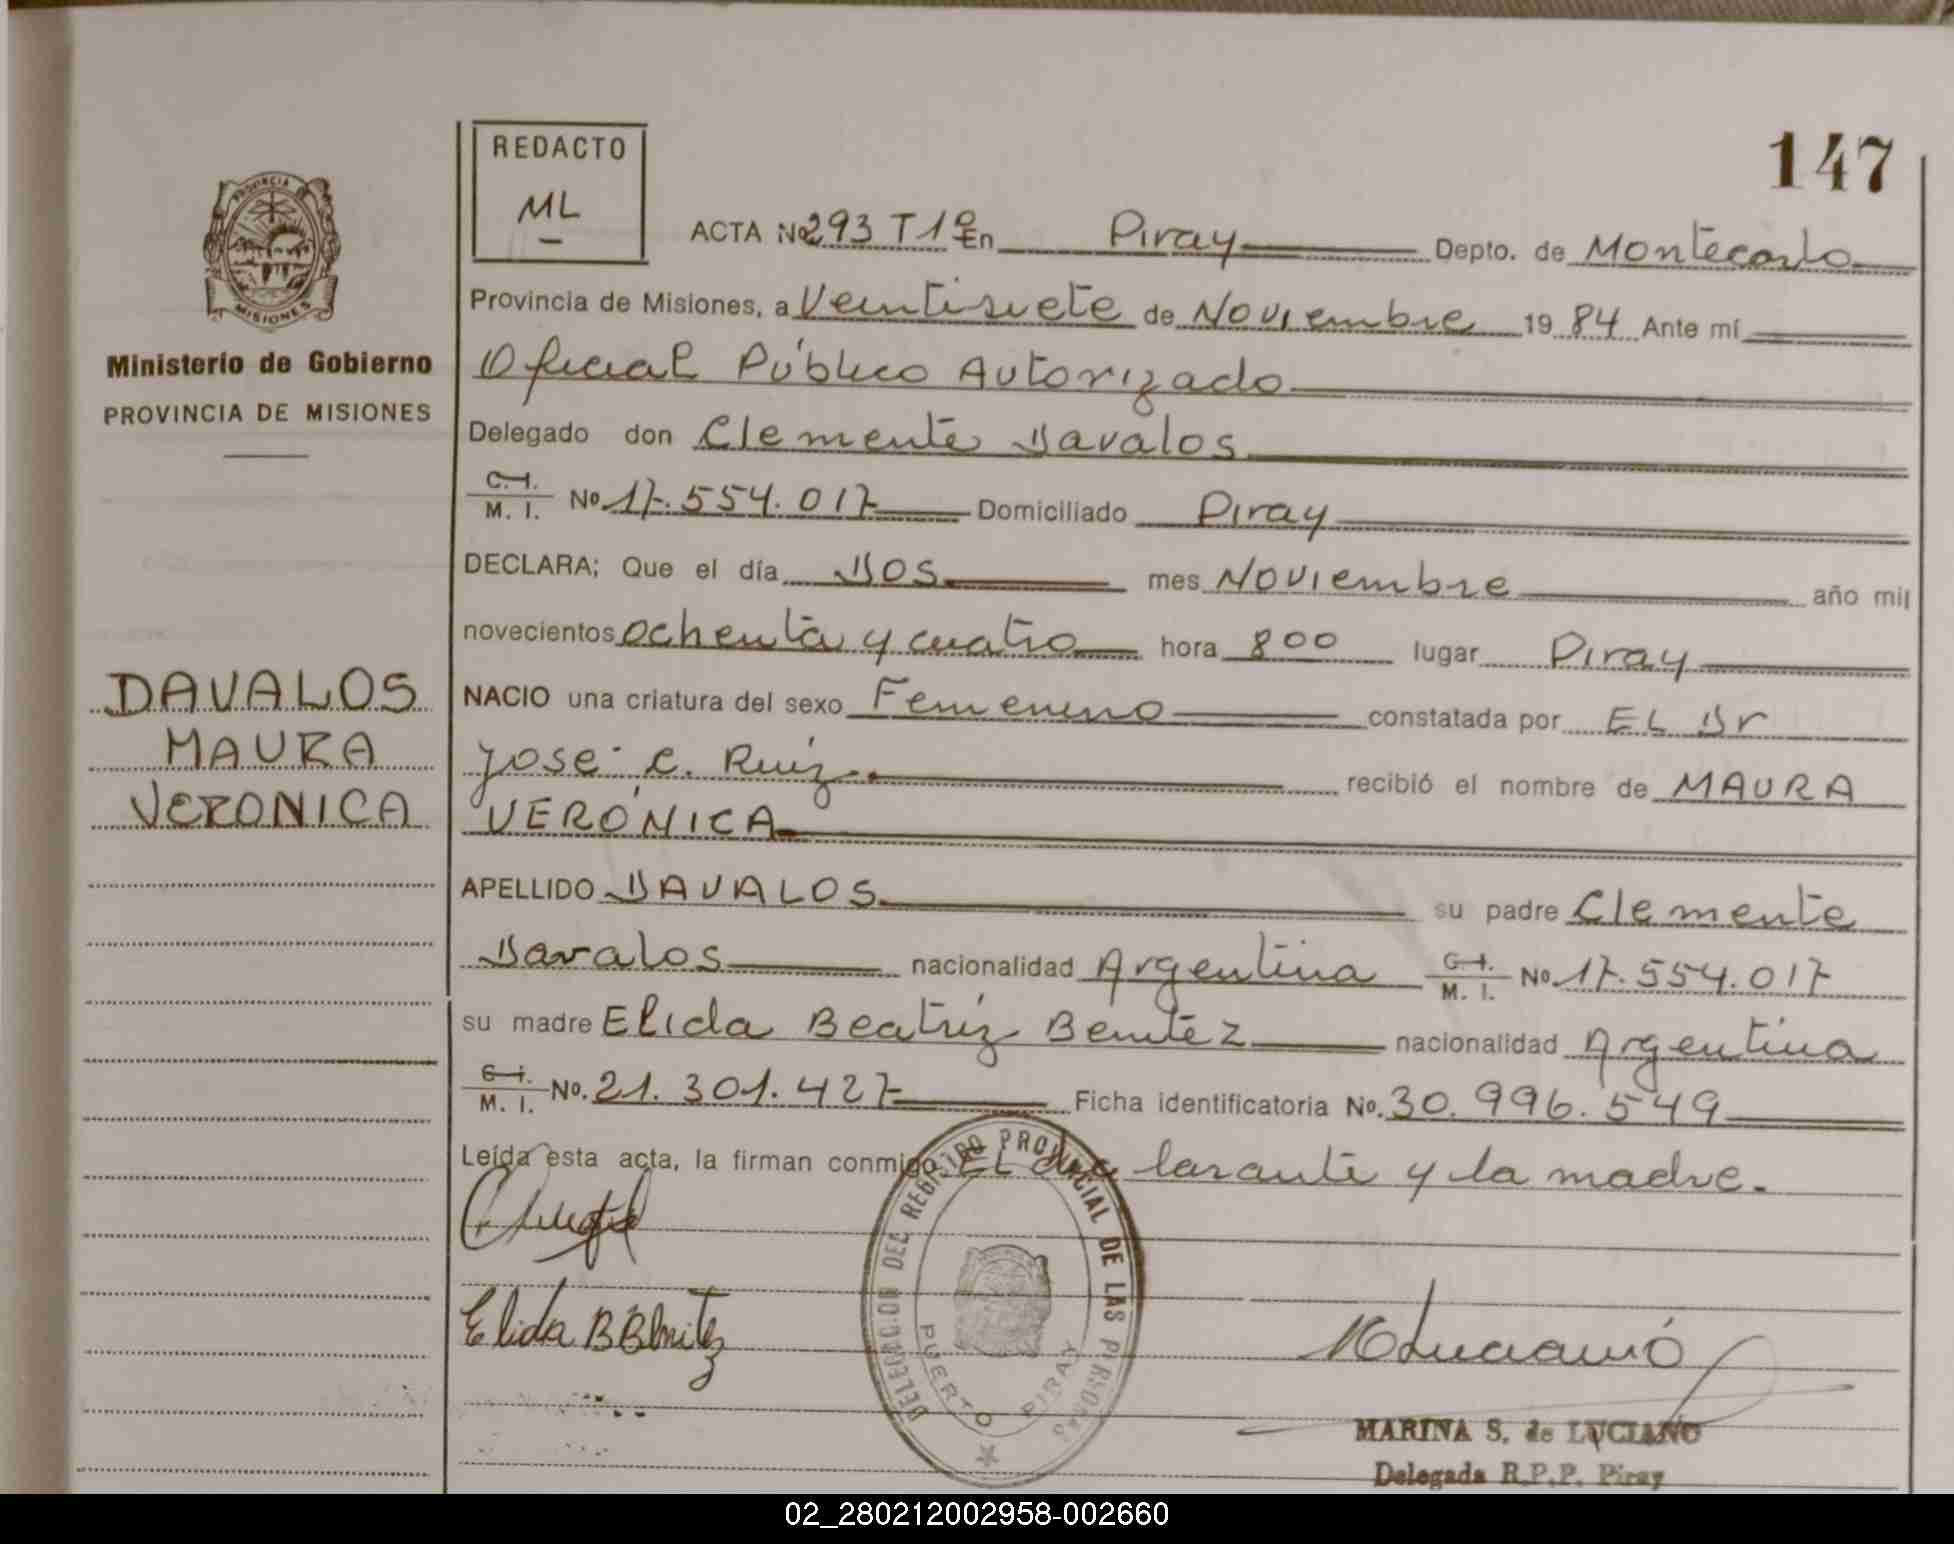 147
REDACTO
ML
PROVINCIA DE
MISIONES
Ministerio de Gobierno
PROVINCIA DE MISIONES
DAVALOS
MAURA
VERONICA
ACTA Nº 293 T1º En Piray Depto. de Montecarlo
Provincia de Misiones, a Veintisiete de Noviembre 1984 Ante mí
Oficial Público Autorizado
Delegado don Clemente Davalos
C. I.
M. I. Nº 17.554.017 Domiciliado Piray
DECLARA; Que el día Dos mes Noviembre año mil
novecientos ochenta y cuatro hora 8 00 lugar Piray
NACIO una criatura del sexo Femenino constatada por EL Dr
José C. Ruíz. recibió el nombre de MAURA
VERÓNICA
APELLIDO DAVALOS su padre Clemente
Davalos nacionalidad Argentina C. I.
M. I. Nº 17.554.017
su madre Elida Beatríz Benitez nacionalidad Argentina
C. I.
M. I. Nº. 21.301.427 Ficha identificatoria Nº. 30.996.549
Leída esta acta, la firman conmigo EL declarante y la madre.
Elida B Benitez
DELEGACION DEL REGISTRO PROVINCIAL DE LAS PERSONAS
PUERTO PIRAY
MARINA S. de LUCIANO
Delegada R.P.P. Piray
02_280212002958-002660